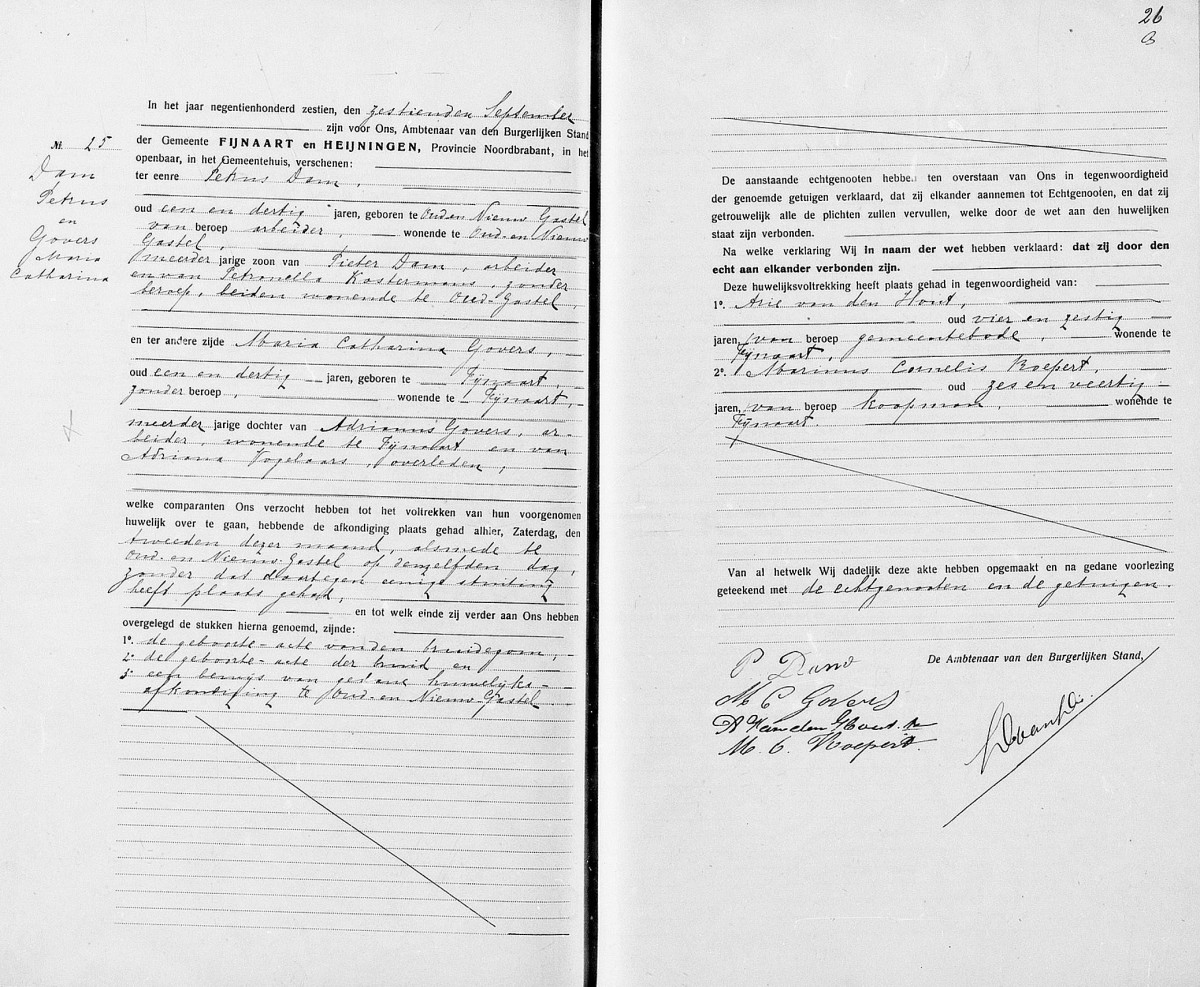 In het jaar negentienhonderd zestien, den zestienden September
zijn voor Ons, Ambtenaar van den Burgerlijken Stand
der Gemeente FIJNAART en HEIJNINGEN, Provincie Noordbrabant, in het
openbaar, in het Gemeentehuis, verschenen:
ter eenre Petrus Dam,
oud een en dertig jaren, geboren te Oud en Nieuw Gastel
van beroep arbeider, wonende te Oud-en Nieuw
Gastel,
meerder jarige zoon van Pieter Dam, arbeider
en van Petronella Kostermans, zonder
beroep, beiden wonende te Oud-Gastel,
en ter andere zijde Maria Catharina Govers,
oud een en dertig jaren, geboren te Fijnaart,
zonder beroep, wonende te Fijnaart,
meerder jarige dochter van Adrianus Govers, ar-
beider, wonende te Fijnaart en van
Adriana Vogelaars, overleden,
welke comparanten Ons verzocht hebben tot het voltrekken van hun voorgenomen
huwelijk over te gaan, hebbende de afkondiging plaats gehad alhier, Zaterdag, den
tweeden dezer maand, alsmede te
Oud-en Nieuw-Gastel op denzelfden dag,
zonder dat daartegen eenige stuiting
heeft plaats gehad,
en tot welk einde zij verder aan Ons hebben
overgelegd de stukken hierna genoemd, zijnde:
1º. de geboorte-acte van den bruidegom,
2º de geboorte-acte der bruid en
3º een bewijs van gedane huwelijks-
afkondiging te Oud-en Nieuw-Gastel
№. 25
Dam
Petrus
en
Govers
Maria
Catharina
26
De aanstaande echtgenooten hebben ten overstaan van Ons in tegenwoordigheid
der genoemde getuigen verklaard, dat zij elkander aannemen tot Echtgenooten, en dat zij
getrouwelijk alle de plichten zullen vervullen, welke door de wet aan den huwelijken
staat zijn verbonden.
Na welke verklaring Wij in naam der wet hebben verklaard: dat zij door den
echt aan elkander verbonden zijn.
Deze huwelijksvoltrekking heeft plaats gehad in tegenwoordigheid van:
1º. Arie van den Hout,
oud vier en zestig
jaren, van beroep gemeentebode, wonende te
Fijnaart,
2º. Marinus Cornelis Roepert,
oud zes en veertig
jaren, van beroep koopman, wonende te
Fijnaart.
Van al hetwelk Wij dadelijk deze akte hebben opgemaakt en na gedane voorlezing
geteekend met de echtgenooten en de getuigen.
De Ambtenaar van den Burgerlijken Stand,
P Dam
M C Govers
A van den Hout
M. C. Roepert